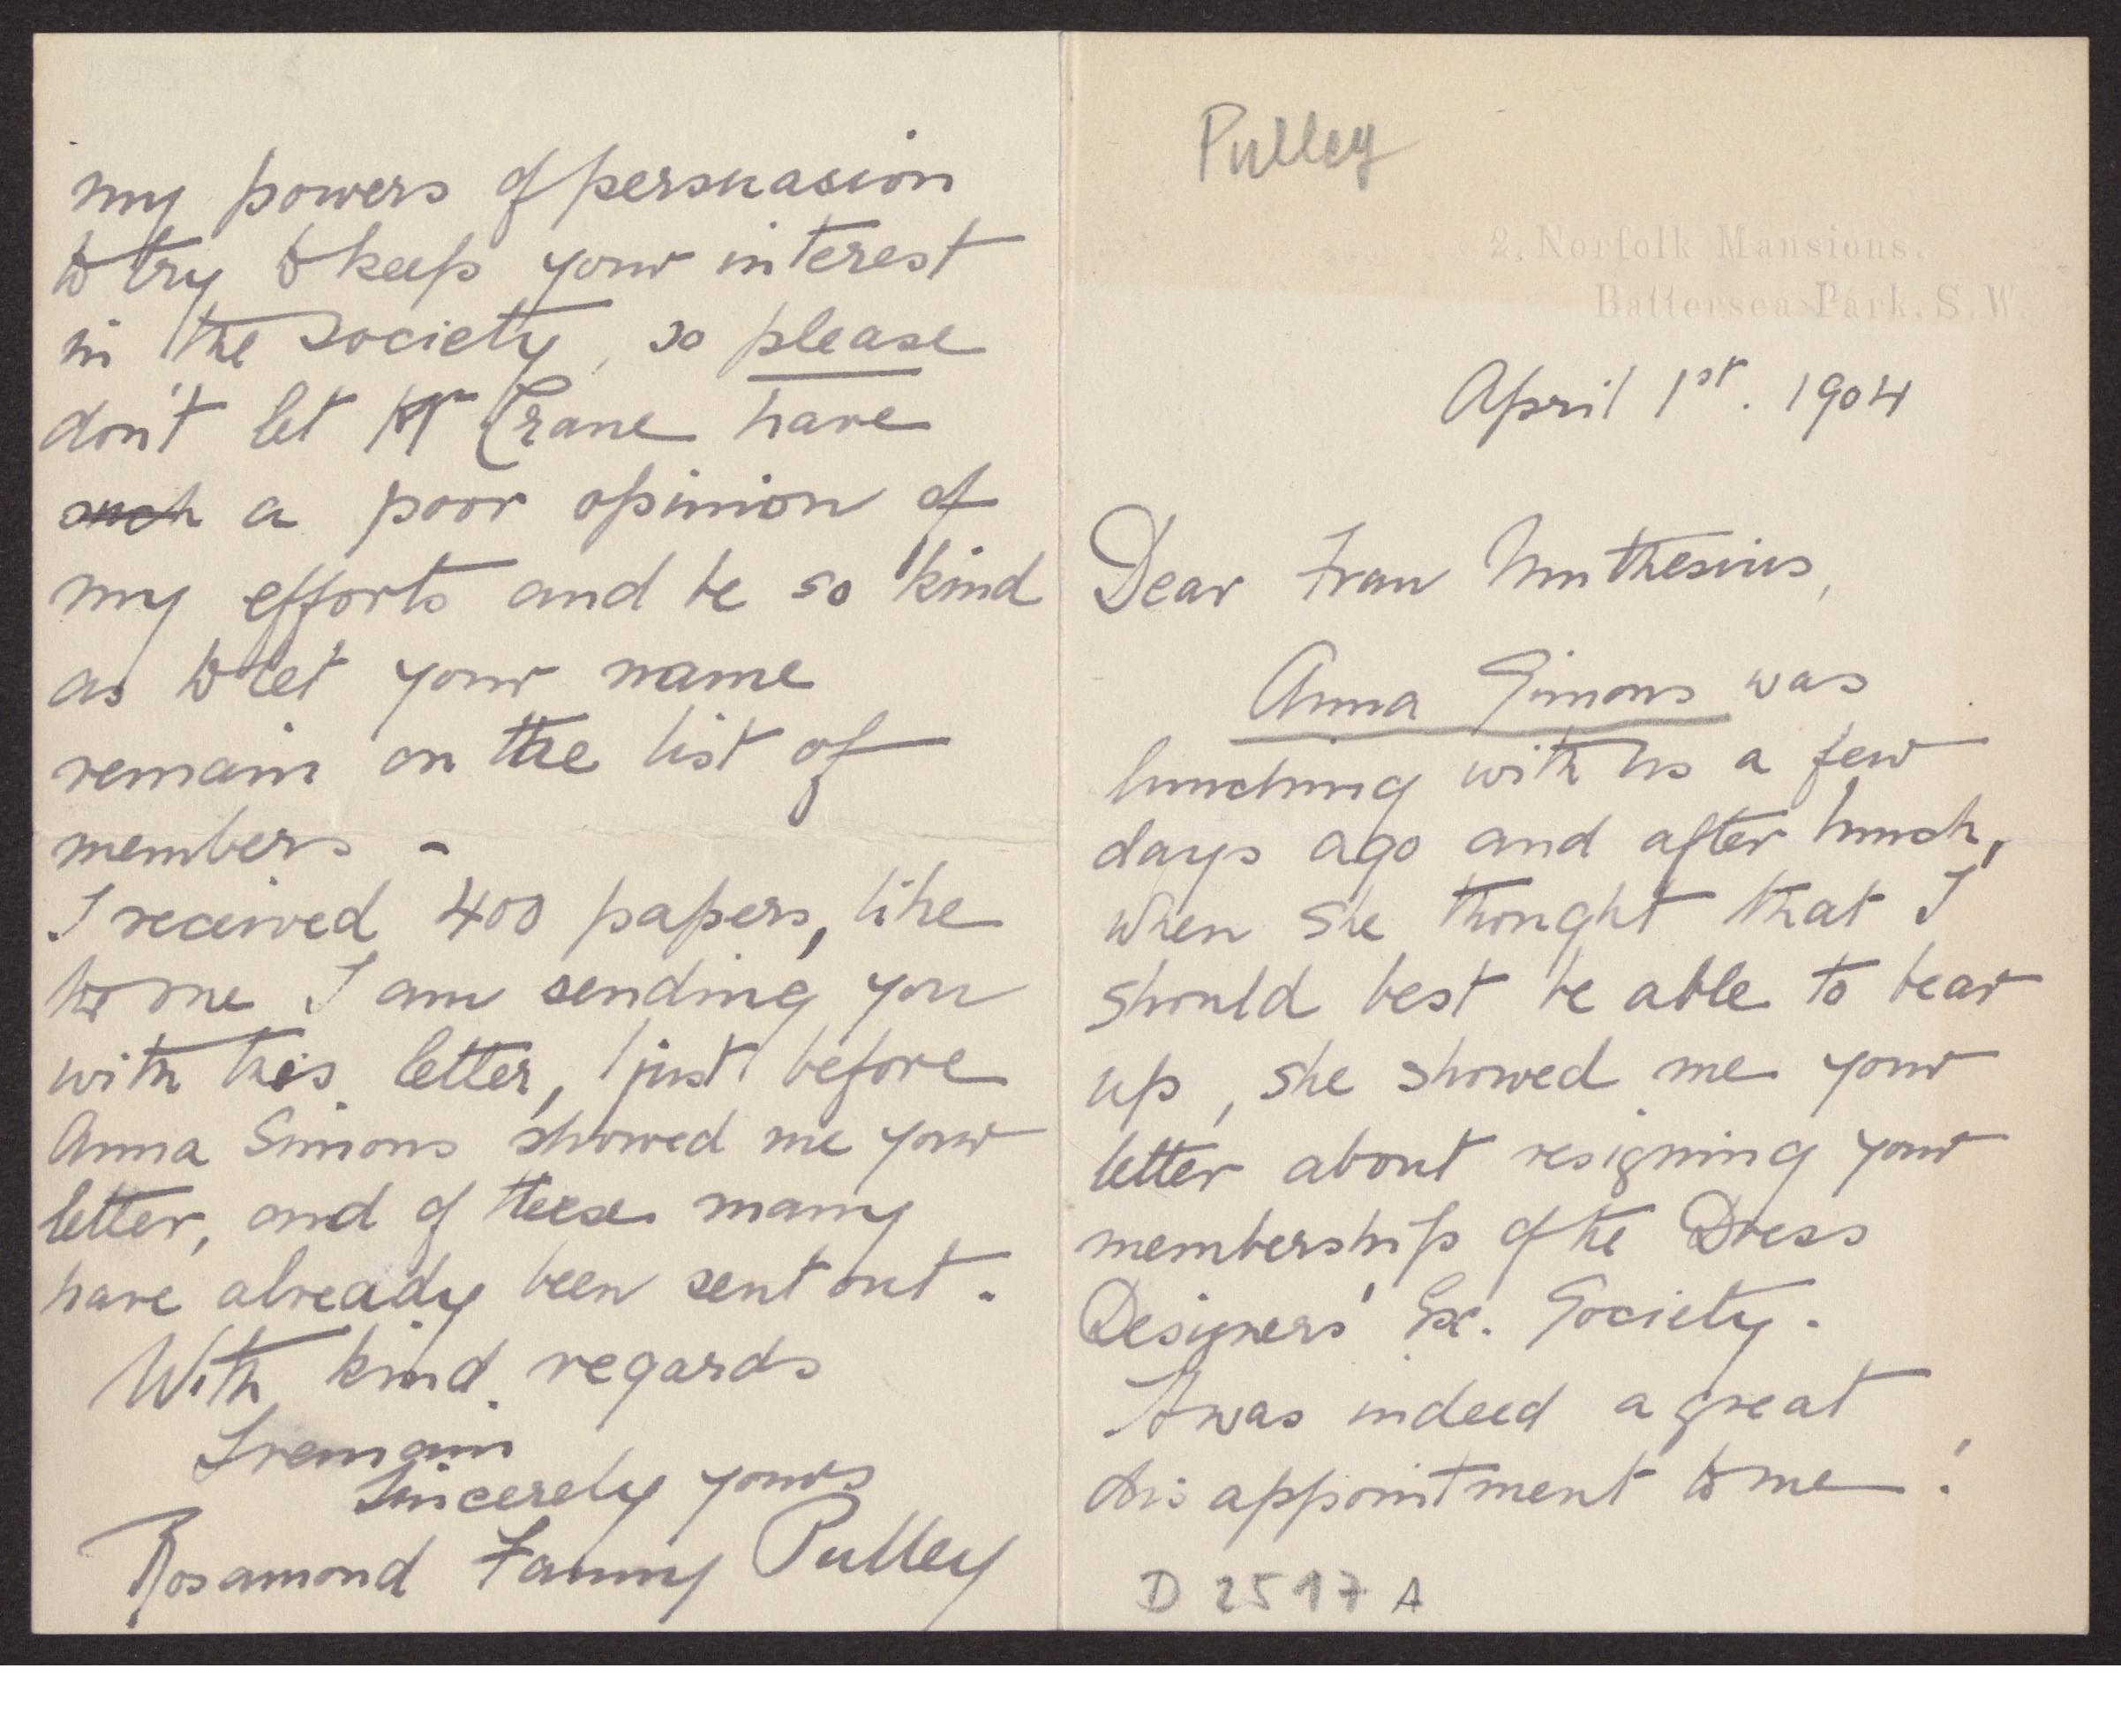 Pulley
2, Norfolk Mansions,
Battersea Park, S.W.
April 1st. 1904
Dear Frau Muthesius,
Anna Simons was
lunching with us a few
days ago and after lunch,
when she thought that I
should best be able to bear
up, she showed me your
letter about resigning your
membership of the Dress
Designers' Ex. Society.
It was indeed a great
disappointment to me!
D 2517 A
my powers of persuasion
to try to keep your interest
in the Society, so please
don't let Mr Crane have
such a poor opinion of
my efforts and be so kind
as to let your name
remain on the list of
members -
I received 400 papers, like
one I am sending you
with this letter, just before
Anna Simons showed me your
letter, and of these many
have already been sent out.
With kind regards
I remain
Sincerely yours
Rosamond Fanny Pulley